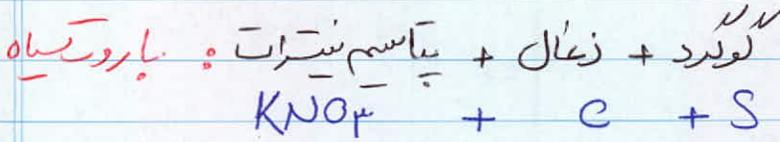 باروت سیاه : پتاسیم نیترات + زغال + گوگرد
KNO۳ + C + S